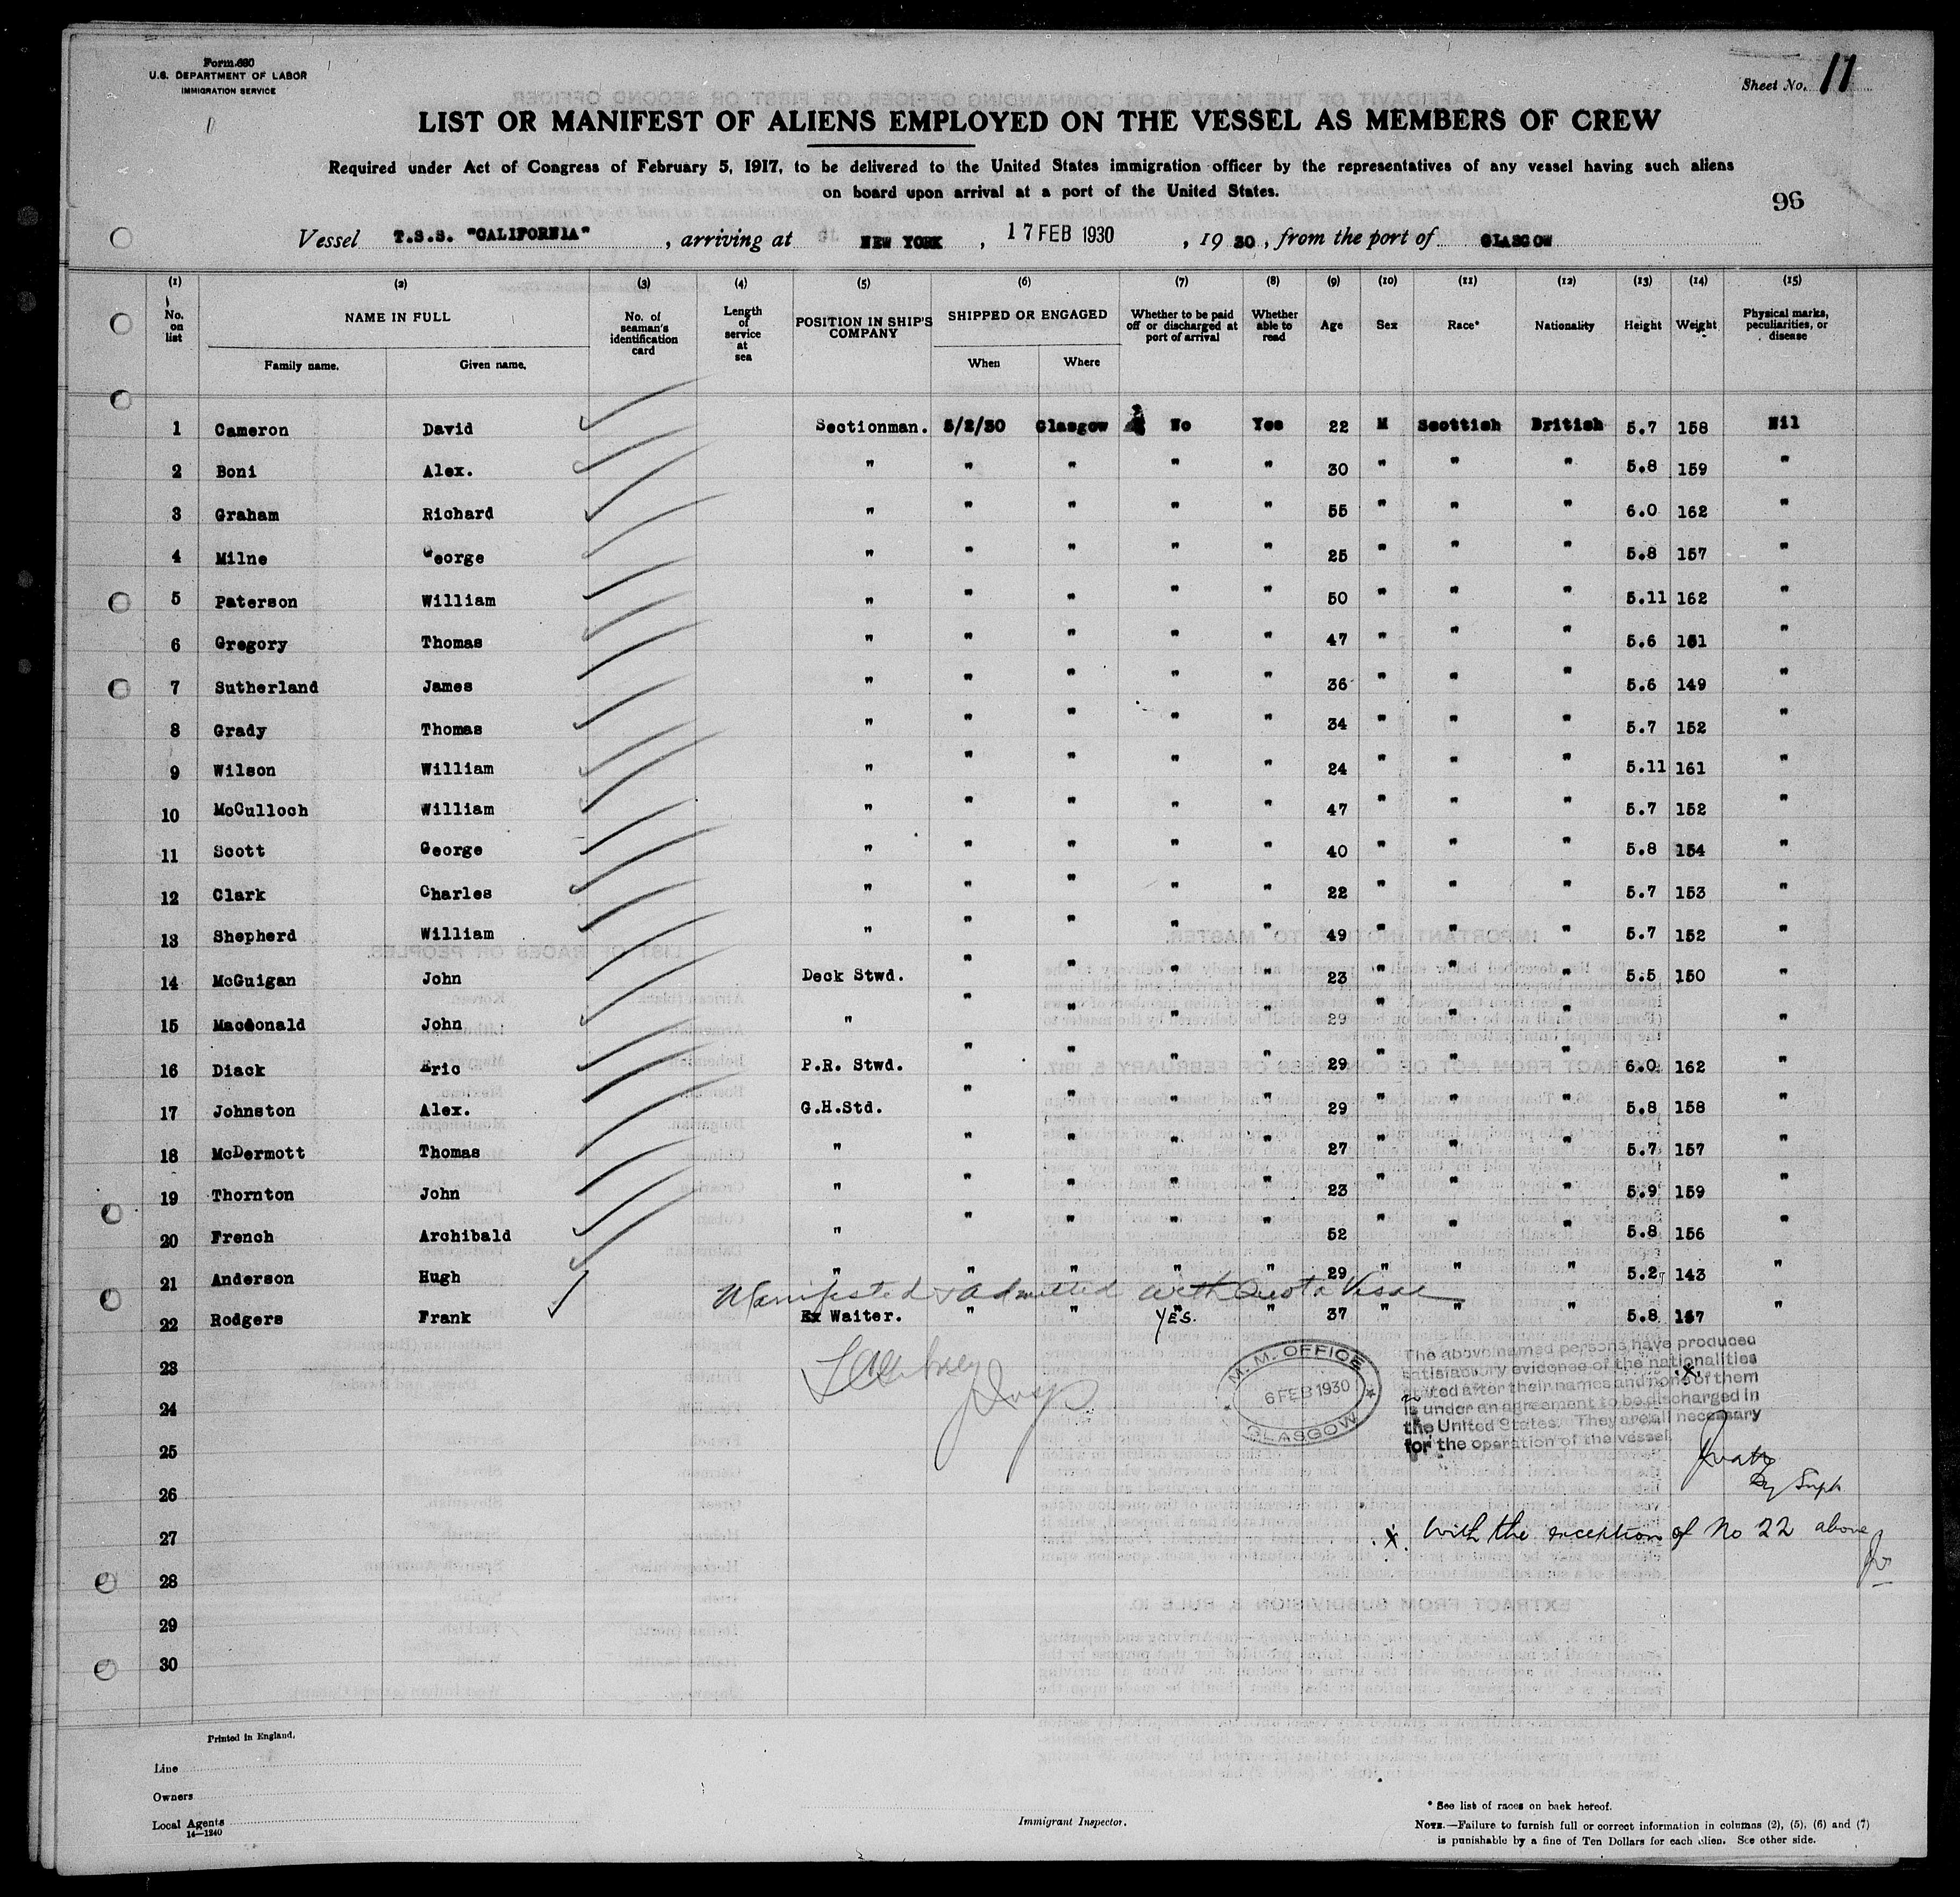 Form 680
U.S. DEPARTMENT OF LABOR
IMMIGRATION SERVICE
Sheet No. 11
LIST OR MANIFEST OF ALIENS EMPLOYED ON THE VESSEL AS MEMBERS OF CREW
Required under Act of Congress of February 5, 1917, to be delivered to the United States immigration officer by the representatives of any vessel having such aliens
on board upon arrival at a port of the United States.
96
Vessel T.S.S. "CALIFORNIA", arriving at NEW YORK, 17 FEB 1930, 1930, from the port of GLASGOW
(1) (2) (3) (4) (5) (6) (7) (8) (9) (10) (11) (12) (13) (14) (15)
No. on list NAME IN FULL No. of seaman's identification card Length of service at sea POSITION IN SHIP'S COMPANY SHIPPED OR ENGAGED Whether to be paid off or discharged at port of arrival Whether able to read Age Sex Race* Nationality Height Weight Physical marks, peculiarities, or disease
Family name. Given name. When Where
1 Cameron David Sectionman. 5/2/30 Glasgow No Yes 22 M Scottish British 5.7 158 Nil
2 Boni Alex. " " " " " 30 " " " 5.8 159 "
3 Graham Richard " " " " " 55 " " " 6.0 162 "
4 Milne George " " " " " 25 " " " 5.8 157 "
5 Paterson William " " " " " 50 " " " 5.11 162 "
6 Gregory Thomas " " " " " 47 " " " 5.6 151 "
7 Sutherland James " " " " " 36 " " " 5.6 149 "
8 Grady Thomas " " " " " 34 " " " 5.7 152 "
9 Wilson William " " " " " 24 " " " 5.11 161 "
10 McCulloch William " " " " " 47 " " " 5.7 152 "
11 Scott George " " " " " 40 " " " 5.8 154 "
12 Clark Charles " " " " " 22 " " " 5.7 153 "
13 Shepherd William " " " " " 49 " " " 5.7 152 "
14 McGuigan John Deck Stwd. " " " " 23 " " " 5.5 150 "
15 Macdonald John " " " " " 29 " " " "
16 Diack Eric P.R. Stwd. " " " " 29 " " " 6.0 162 "
17 Johnston Alex. G.H.Std. " " " " 29 " " " 5.8 158 "
18 McDermott Thomas " " " " " 27 " " " 5.7 157 "
19 Thornton John " " " " " 23 " " " 5.9 159 "
20 French Archibald " " " " " 52 " " " 5.8 156 "
21 Anderson Hugh " " " " " 29 " " " 5.2 143 "
Manifested & admitted with Quota Visae
22 Rodgers Frank Ex Waiter. " " " YES. " 37 " " " 5.8 157 "
23
24
25
26
27
28
29
30
M. M. OFFICE
6 FEB 1930
GLASGOW
The above named persons have produced
satisfactory evidence of the nationalities
stated after their names and none of them
is under an agreement to be discharged in
the United States. They are all necessary
for the operation of the vessel.
x
x. With the exception of No 22 above
Printed in England.
Line
Owners
Local Agents
14—1240
Immigrant Inspector.
* See list of races on back hereof.
NOTE.—Failure to furnish full or correct information in columns (2), (5), (6) and (7)
is punishable by a fine of Ten Dollars for each alien. See other side.